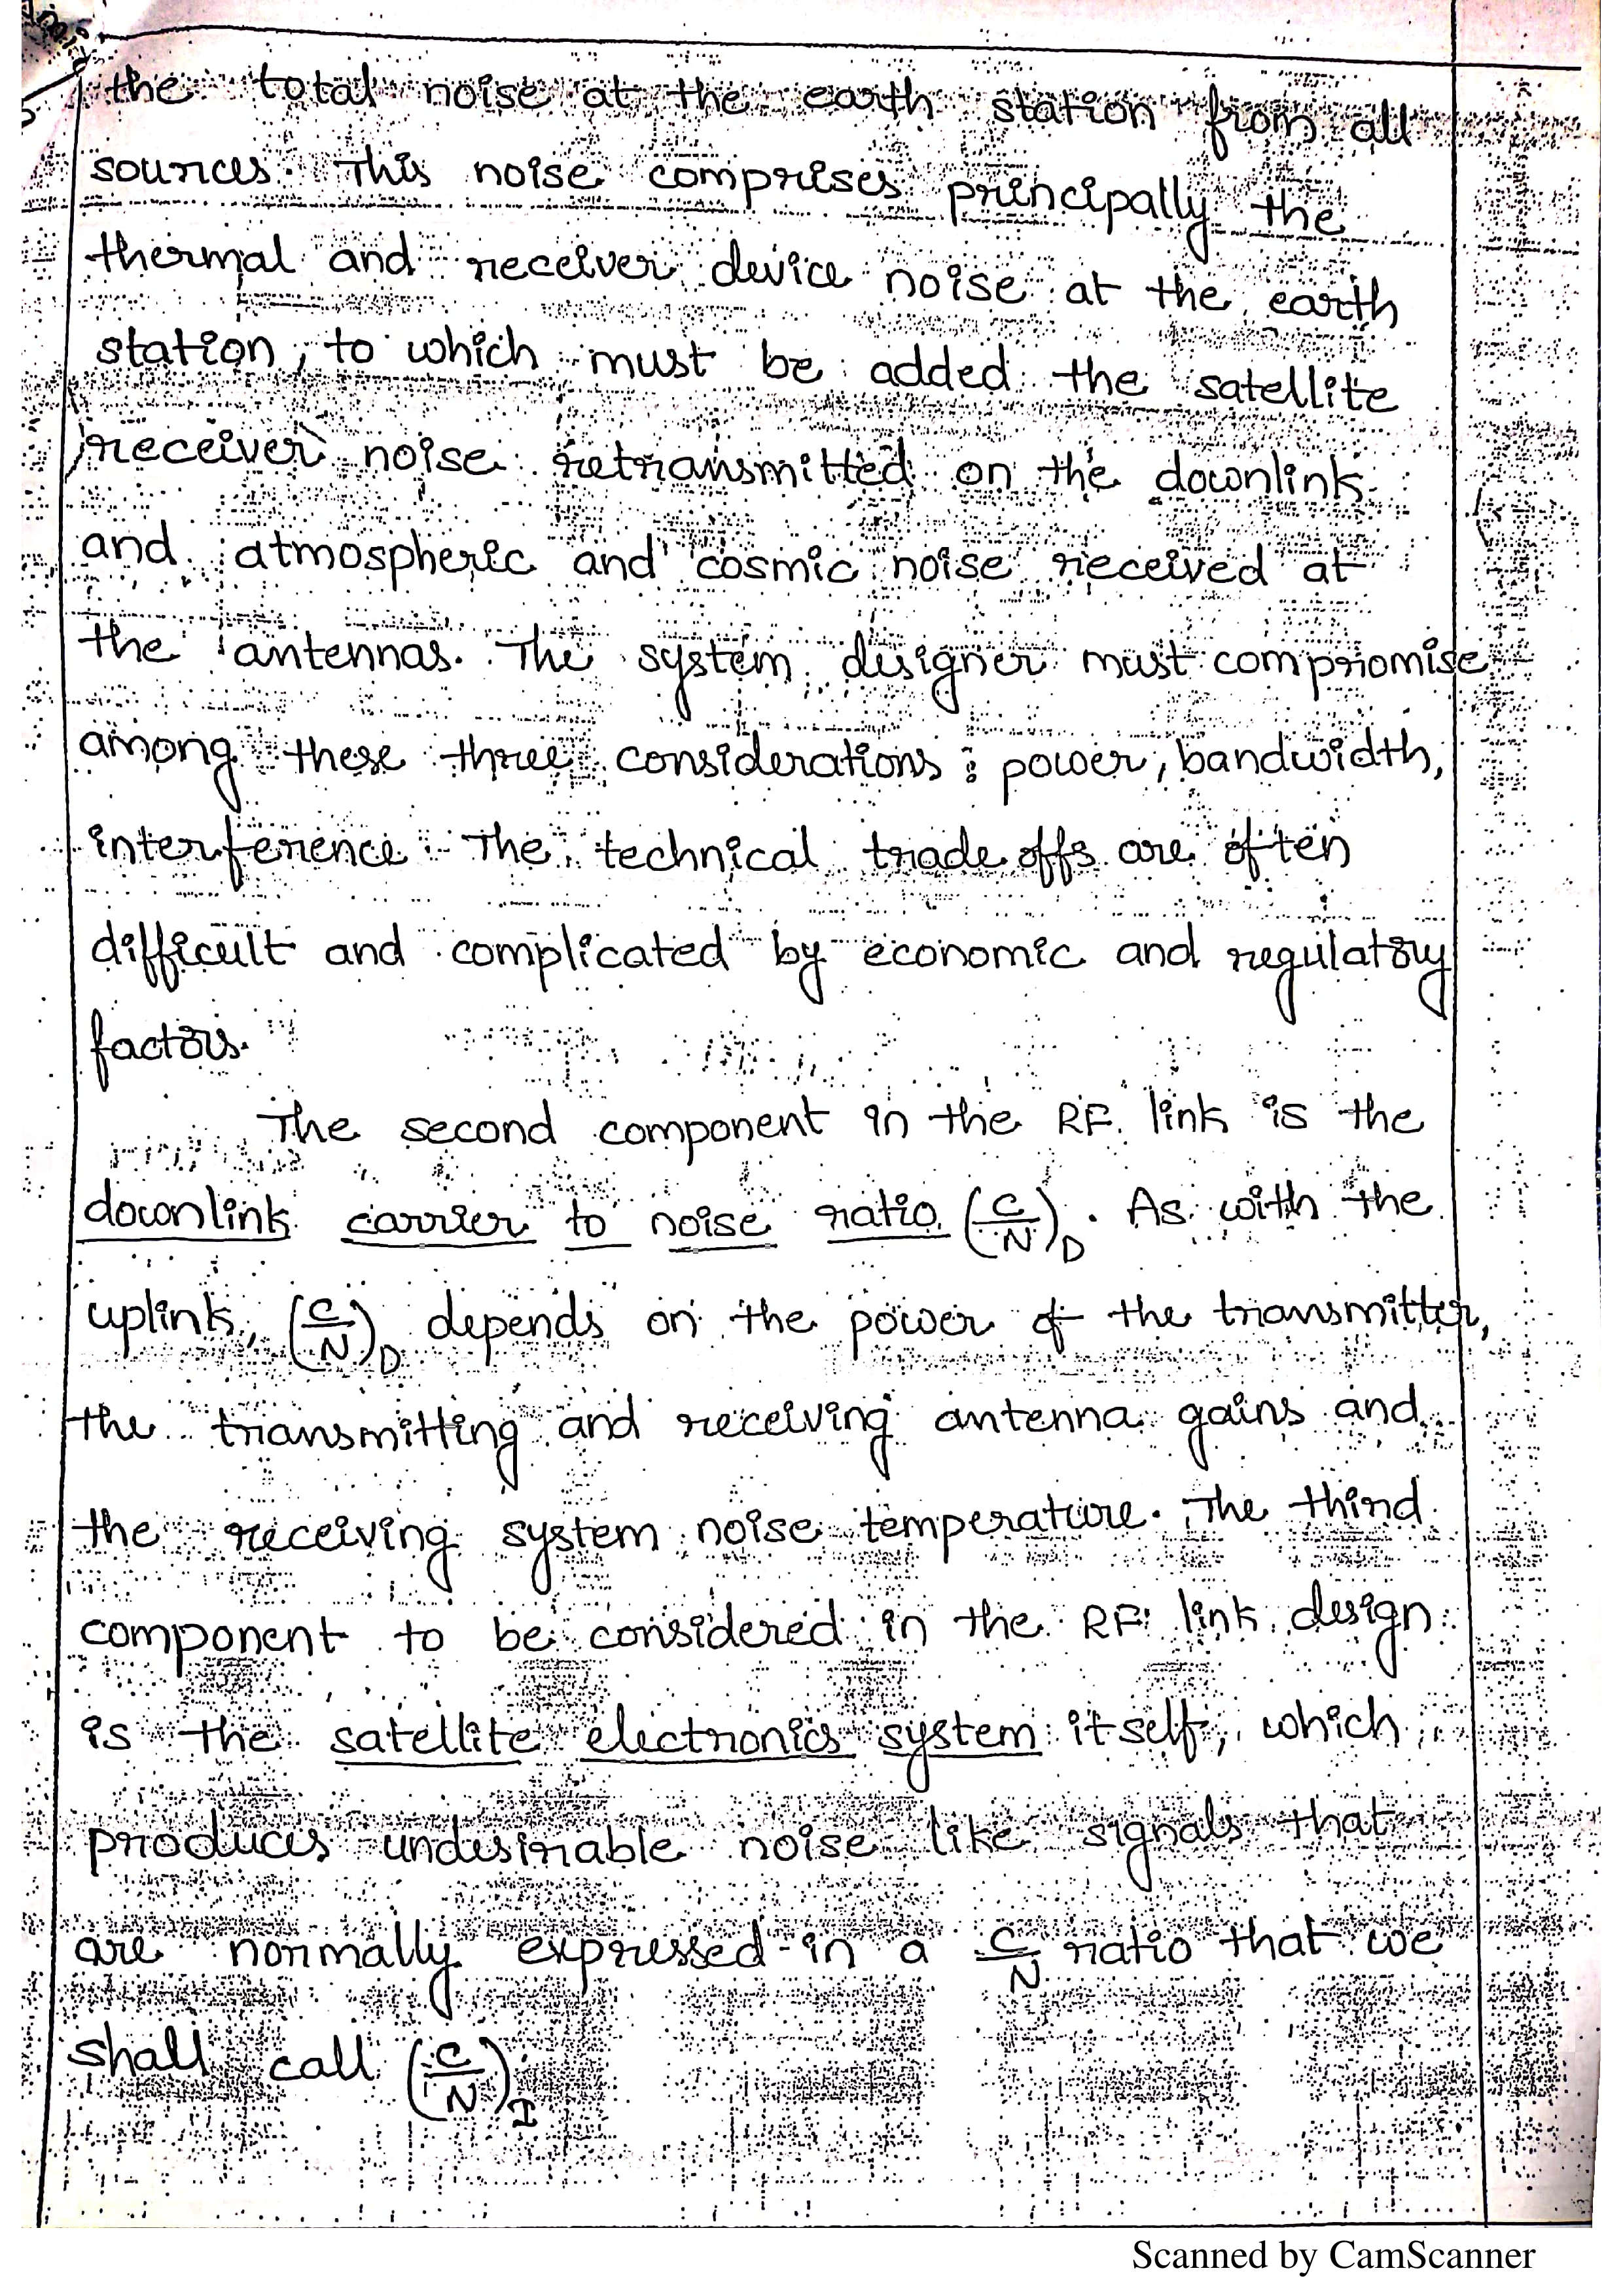 the total noise at the earth station from all
sources. This noise comprises principally the
thermal and receiver device noise at the earth
station, to which must be added the satellite
receiver noise retransmitted on the downlink
and atmospheric and cosmic noise received at
the antennas. The system designer must compromise
among these three considerations : power, bandwidth,
interference. The technical trade offs are often
difficult and complicated by economic and regulatory
factors.
The second component in the RF link is the
downlink carrier to noise ratio (C/N)D. As with the
uplink, (C/N)D depends on the power of the transmitter,
the transmitting and receiving antenna gains and
the receiving system noise temperature. The third
component to be considered in the RF link design
is the satellite electronics system itself, which
produces undesirable noise like signals that
are normally expressed in a C/N ratio that we
shall call (C/N)I
Scanned by CamScanner